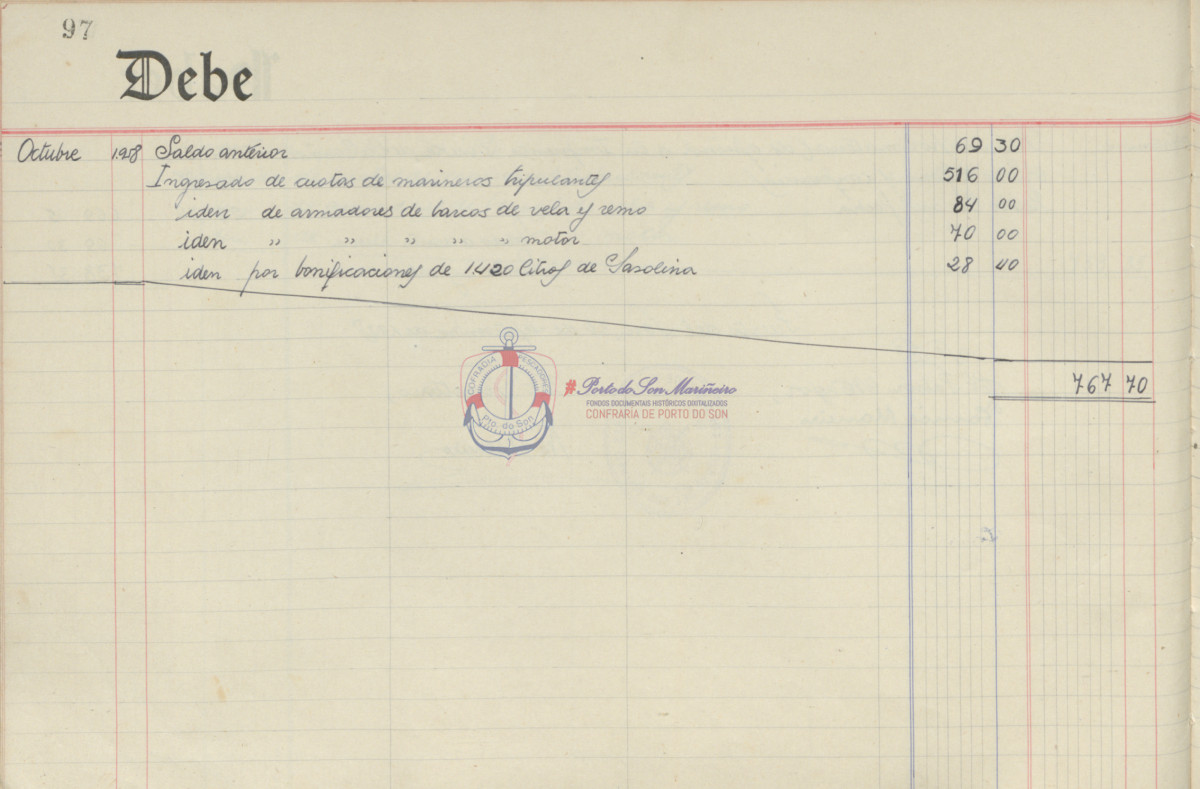 97
Debe
Octubre 1.958 Saldo anterior 69 30
Ingresado de cuotas de marineros tripulantes 516 00
iden de armadores de barcos de vela y remo 84 00
iden " " " " " motor 70 00
iden por bonificaciones de 1420 litros de Gasolina 28 40
COFRADIA PESCADORES
Pto. do Son
#Porto do Son Mariñeiro
FONDOS DOCUMENTAIS HISTÓRICOS DIXITALIZADOS
CONFRARÍA DE PORTO DO SON
767 70